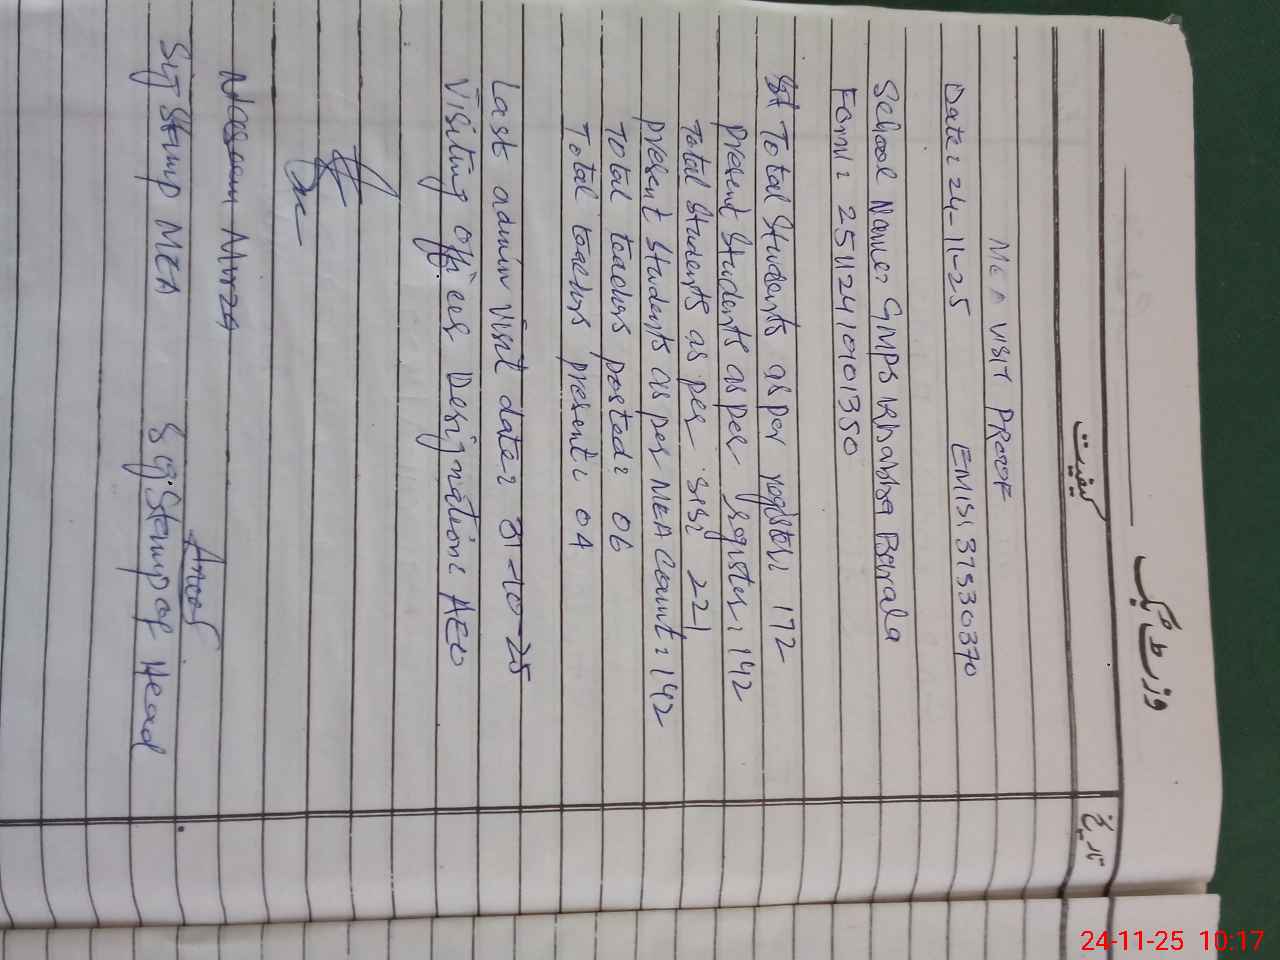 وزٹ بک
کیفیت
تاریخ
MEA VISIT PROOF
Date: 24-11-25 EMIS: 37330370
School Name: GMPS Khabba Barala
Form: 25112410101350
Total Students as per register: 172
Present Students as per register: 142
Total Students as per SIS: 221
Present Students as per MEA Count: 142
Total teachers posted: 06
Total teachers present: 04
Last admin visit date: 31-10-25
Visiting officer Designation: AEO
Sig Stamp MEA Sig. Stamp of Head
24-11-25 10:17